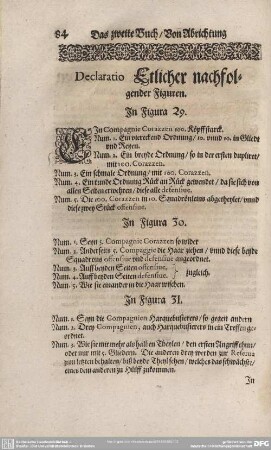 84 Das zweite Buch / Von Abrichtung
Declaratio Etlicher nachfol-
gender Figuren.
In Figura 29.
Ein Compagnie Curazzen 100. Köpff starck.
Num. 1. Ein viereckend Ordnung / 10. vnnd 10. in Gliedt
vnd Reyen.
Num. 2. Ein breyde Ordnung / so in der ersten dupliret /
mit 100. Corazzen.
Num. 3. Ein schmale Ordnung / mit 100. Corazzen.
Num. 4. Ein runde Ordnung Rück an Rück gewendet / da sie sich von
allen Seiten erwehren / diese alle defensive.
Num. 5. Die 100. Corazzen in 10. Squadrönlein abgetheylet / vnnd
diese zwey Stück offensive.
In Figura 30.
Num. 1. Seyn 5. Compagnie Corazzen so wider
Num. 2. Anderseits 5. Compagnie die Haar ziehen / vnnd diese beyde
Squadronn offensive vnd defensive angeordnet.
Num. 3. Auff beyden Seiten offensive.
Num. 4. Auff beyden Seiten defensive. zugleich.
Num. 5. Wie sie einander in die Haar wischen.
In Figura 31.
Num. 1. Seyn die Compagnien Harquebusierers / so gegen andern
Num. 2. Drey Compagnien / auch Harquebusierers in ein Treffen ge-
ordnet.
Num. 3. Wie sie mit mehr als halben Theylen / den ersten Angriff thun /
oder nur mit 5. Gliedern. Die anderen drey werden zur Reserva
zum letzten behalten / biß beyde Theyl sehen / welches das schwächste /
eines dem anderen zu Hülff zukommen.
In